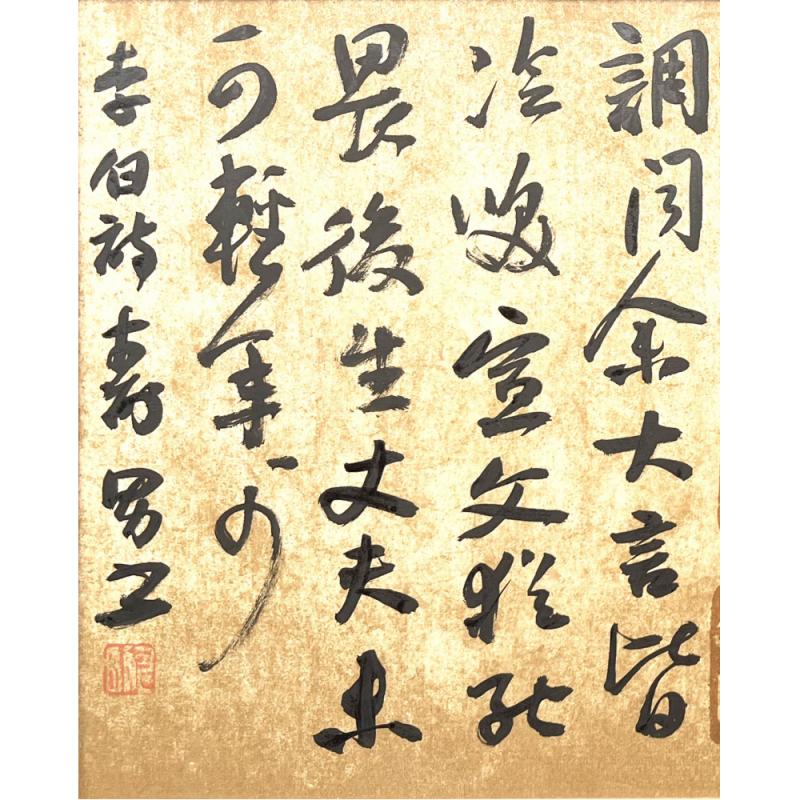 調闻余大言皆
冷咲宣父猶能
畏後生丈夫未
可輕年少
李白詩壽